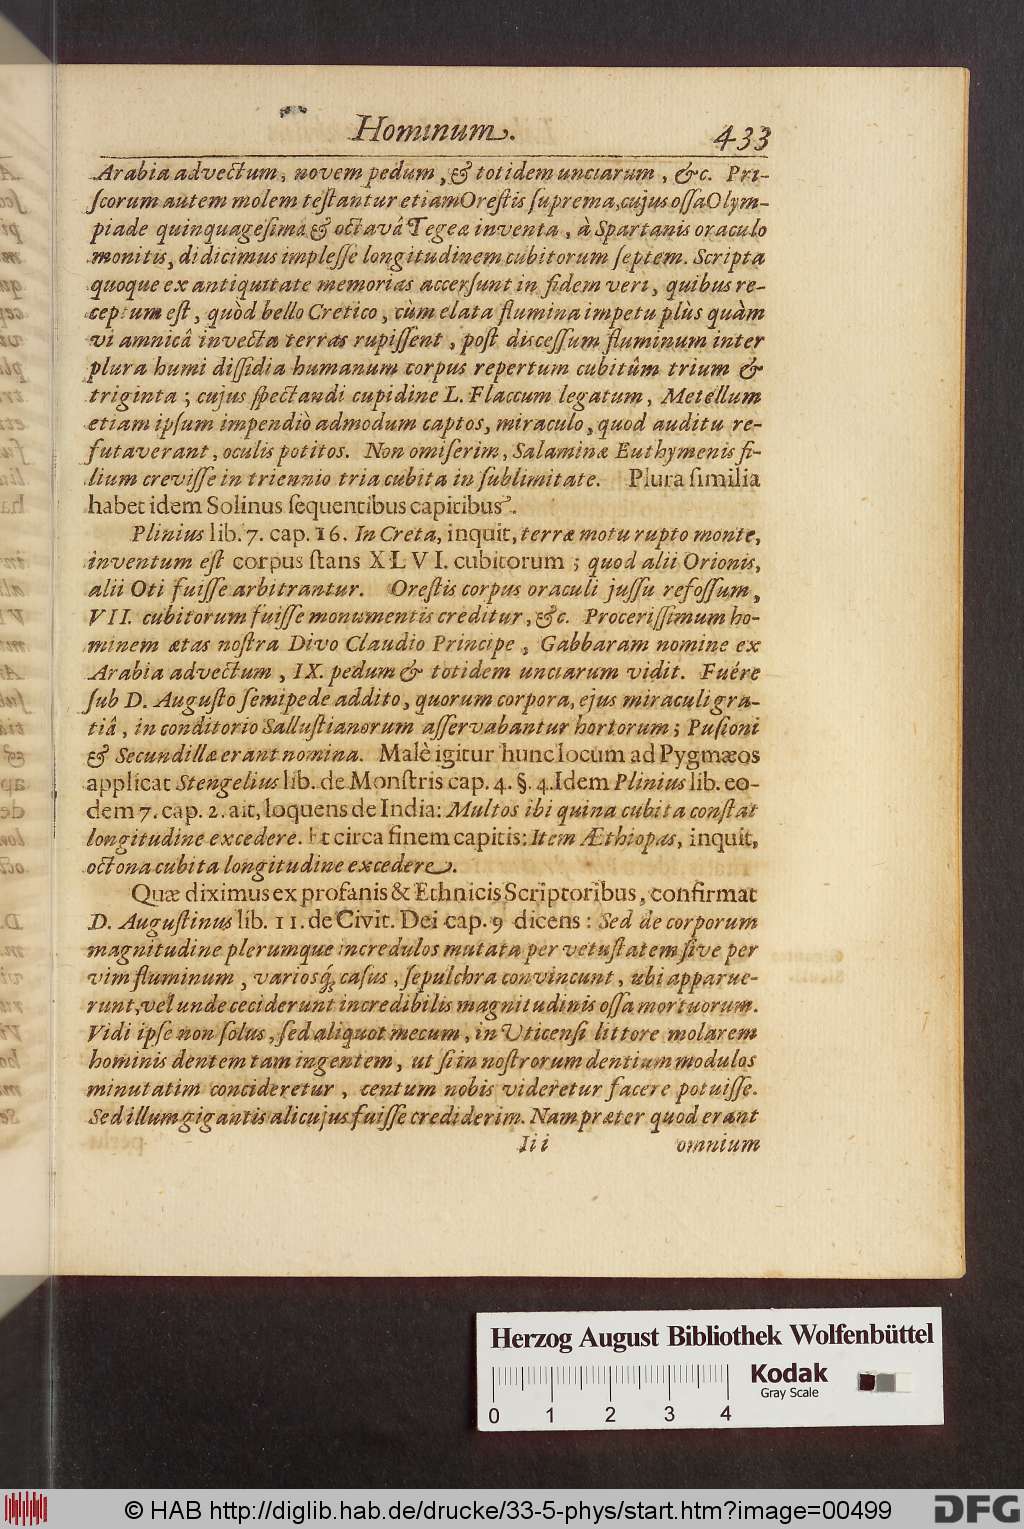 Hominum. 433
Arabia advectum, novem pedum, & totidem unciarum, &c. Pri-
ſcorum autem molem teſtantur etiam Oreſtis ſuprema, cujus oſſa Olym-
piade quinquageſimâ & octavâ Tegea inventa, à Spartanis oraculo
monitis, didicimus impleſſe longitudinem cubitorum ſeptem. Scripta
quoque ex antiquitate memorias accerſunt in fidem veri, quibus re-
ceptum eſt, quòd bello Cretico, cùm elata flumina impetu plùs quàm
vi amnicâ invecta terras rupiſſent, poſt diſceſſum fluminum inter
plura humi diſſidia humanum corpus repertum cubitûm trium &
triginta; cujus ſpectandi cupidine L. Flaccum legatum, Metellum
etiam ipſum impendiò admodum captos, miraculo, quod auditu re-
futaverant, oculis potitos. Non omiſerim, Salaminæ Euthymenis fi-
lium creviſſe in triennio tria cubita in ſublimitate. Plura ſimilia
habet idem Solinus ſequentibus capitibus.
Plinius lib. 7. cap. 16. In Creta, inquit, terræ motu rupto monte,
inventum eſt corpus ſtans XLVI. cubitorum; quod alii Orionis,
alii Oti fuiſſe arbitrantur. Oreſtis corpus oraculi juſſu refoſſum,
VII. cubitorum fuiſſe monumentis creditur, &c. Proceriſſimum ho-
minem ætas noſtra Divo Claudio Principe, Gabbaram nomine ex
Arabia advectum, IX. pedum & totidem unciarum vidit. Fuére
ſub D. Auguſto ſemipede addito, quorum corpora, ejus miraculi gra-
tiâ, in conditorio Salluſtianorum aſſervabantur hortorum; Puſioni
& Secundillæ erant nomina. Malè igitur hunc locum ad Pygmæos
applicat Stengelius lib. de Monſtris cap. 4. §. 4. Idem Plinius lib. eo-
dem 7. cap. 2. ait, loquens de India: Multos ibi quina cubita conſtat
longitudine excedere. Et circa finem capitis: Item Æthiopas, inquit,
octona cubita longitudine excedere.
Quæ diximus ex profanis & Ethnicis Scriptoribus, confirmat
D. Auguſtinus lib. 11. de Civit. Dei cap. 9 dicens: Sed de corporum
magnitudine plerumque incredulos mutata per vetuſtatem ſive per
vim fluminum, variosq́; caſus, ſepulchra convincunt, ubi apparue-
runt, vel unde ceciderunt incredibilis magnitudinis oſſa mortuorum.
Vidi ipſe non ſolus, ſed aliquot mecum, in Uticenſi littore molarem
hominis dentem tam ingentem, ut ſi in noſtrorum dentium modulos
minutatim concideretur, centum nobis videretur facere potuiſſe.
Sed illum gigantis alicujus fuiſſe crediderim. Nam præter quod erant
Iii omnium
Herzog August Bibliothek Wolfenbüttel
Kodak
Gray Scale
0 1 2 3 4
© HAB http://diglib.hab.de/drucke/33-5-phys/start.htm?image=00499
DFG